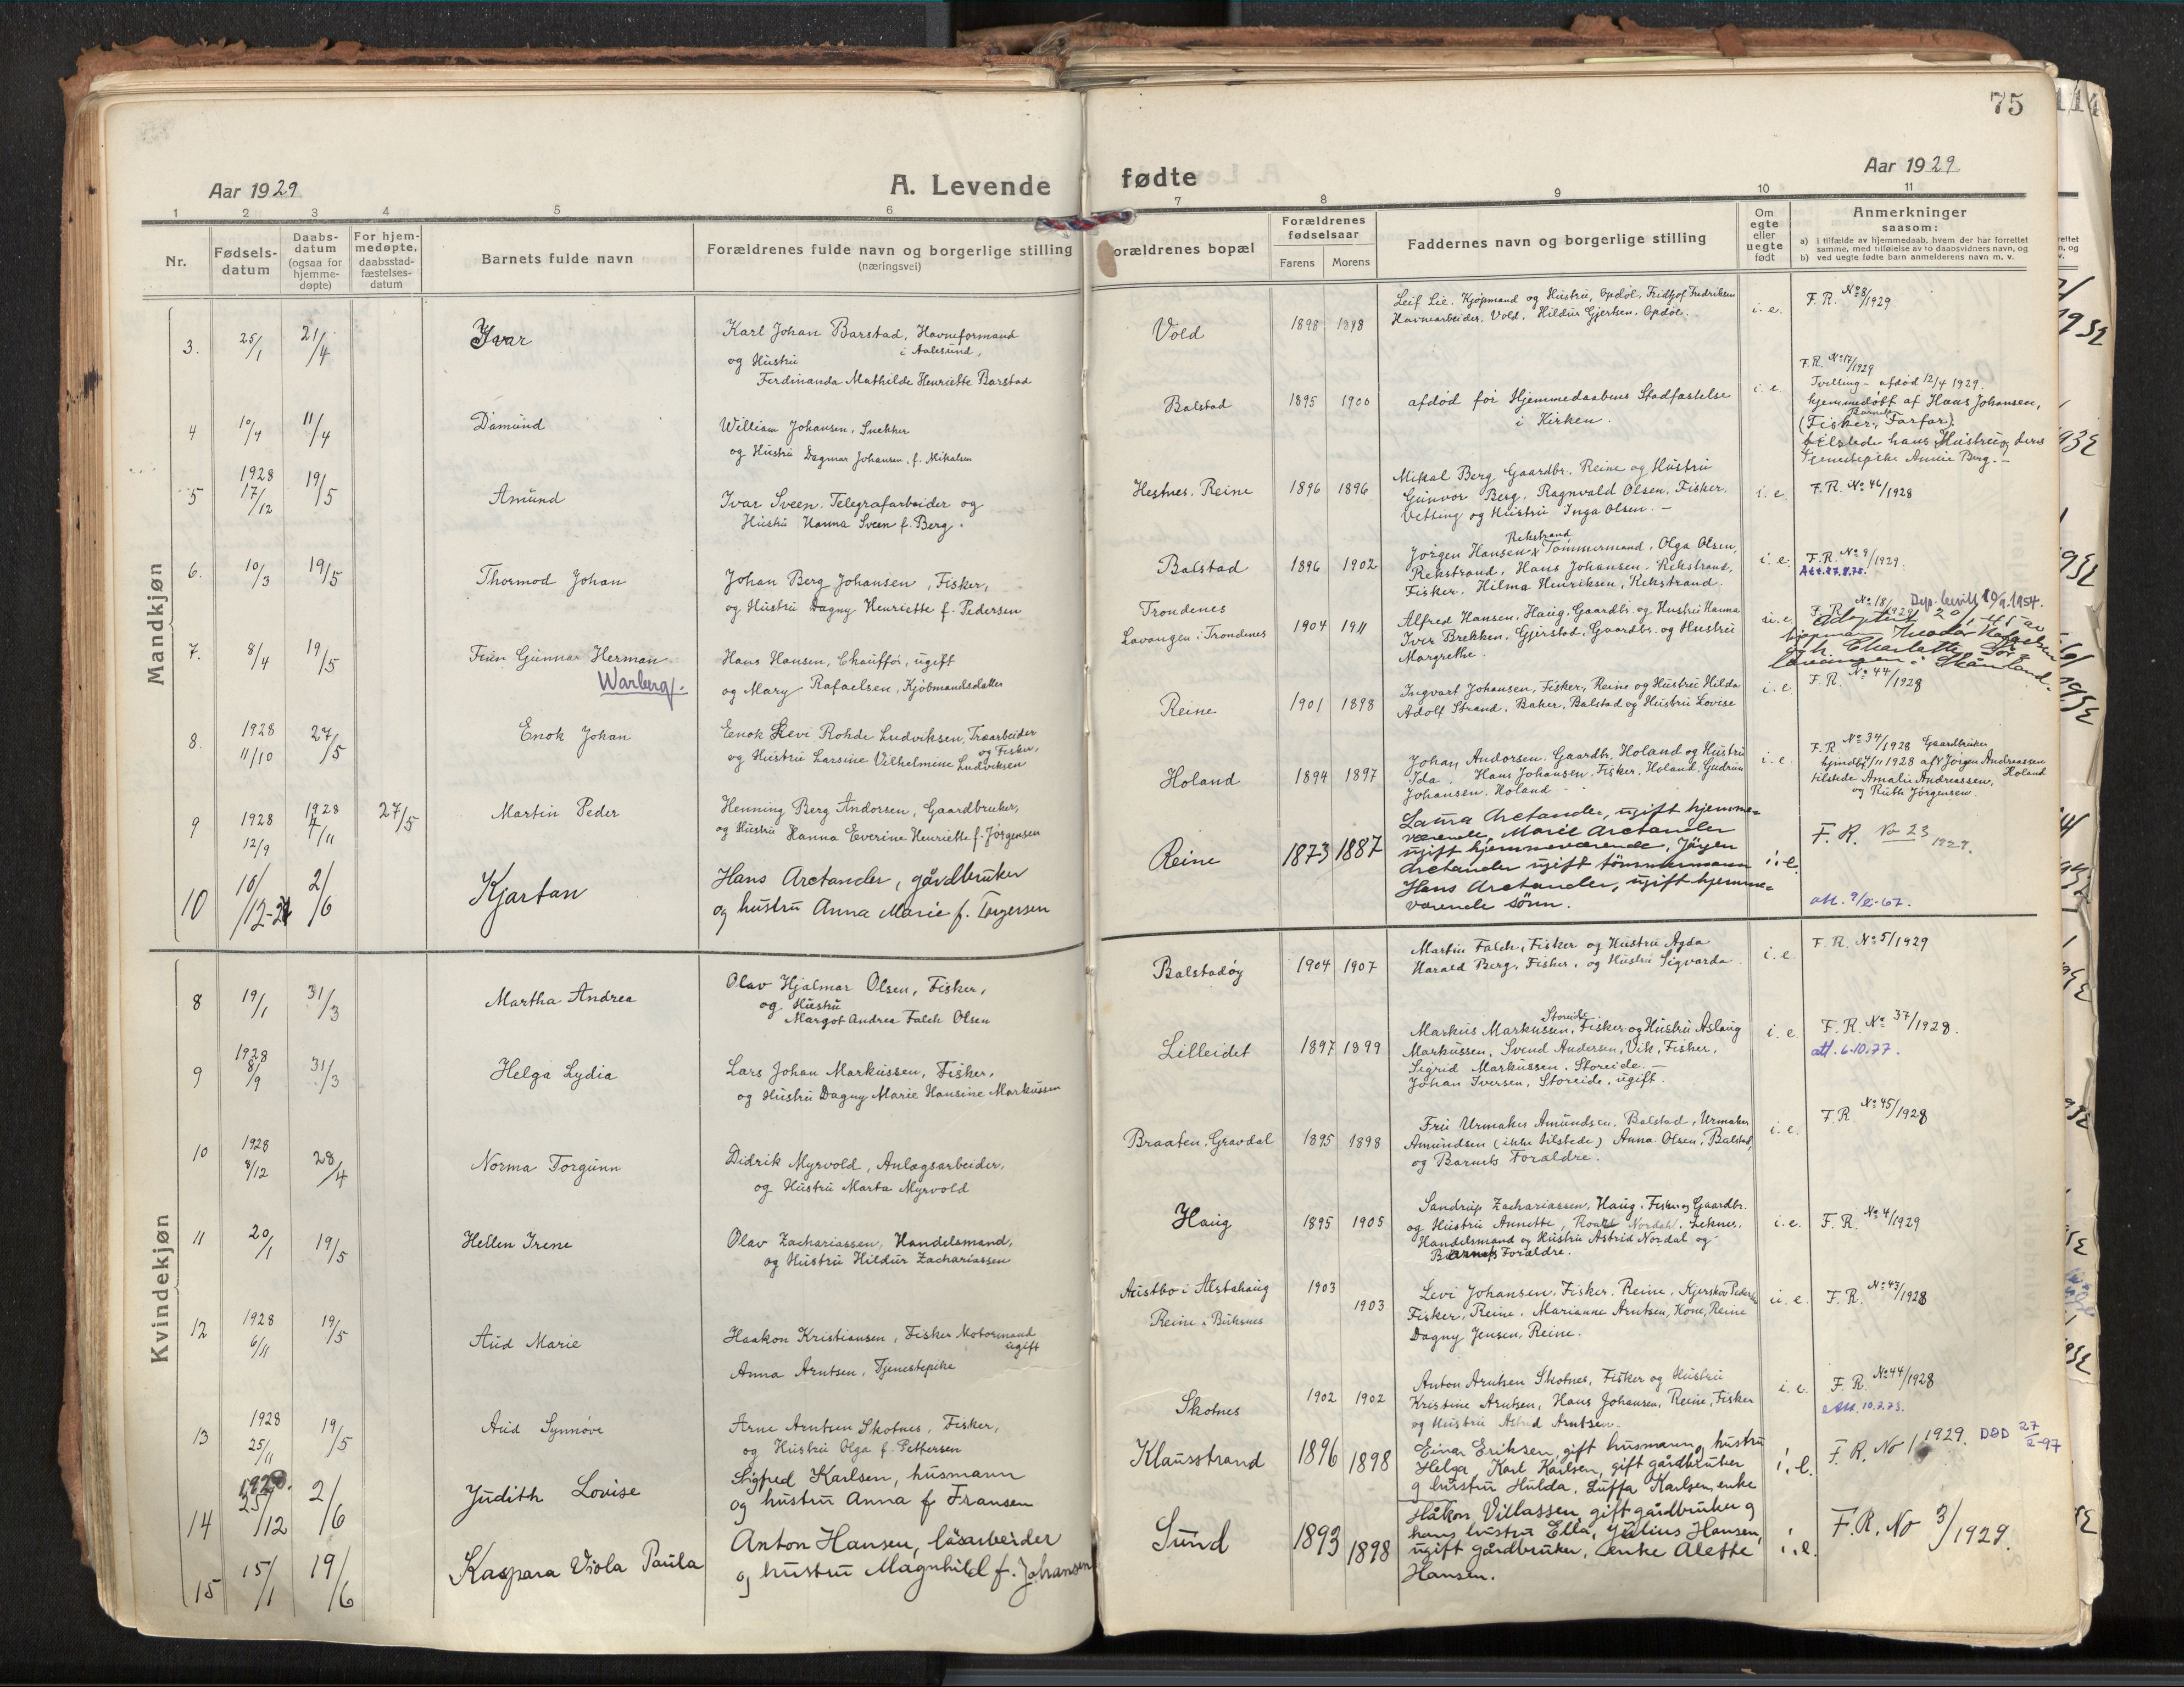 75
Aar 1929
A. Levende
fødte
Aar 1929
1
2
3
4
5
6
7
8
9
10
11
Nr.
Fødsels-
datum
Daabs-
datum
(ogsaa for
hjemme-
døpte)
For hjem-
medøpte,
daabsstad-
fæstelses-
datum
Barnets fulde navn
Forældrenes fulde navn og borgerlige stilling
(næringsvei)
orældrenes bopæl
Forældrenes
fødselsaar
Farens
Morens
Faddernes navn og borgerlige stilling
Om
egte
eller
uegte
født
Anmerkninger
saasom:
a) i tilfælde av hjemmedaab, hvem der har forrettet
samme, med tilføielse av to daabsvidners navn, og
b) ved uegte fødte barn anmelderens navn m. v.
Mandkjøn
3.
25/1
21/4
Ivar
Karl Johan Barstad, Havneformand
i Aalesund,
og Hustru
Ferdinanda Mathilde Henriette Barstad
Vold
1898
1898
Leif Lie, Kjøpmand og Hustru, Opdøl, Fridtjof Fredriksen
Havnearbeider, Vold, Hildur Gjertsen, Opdøl.
i. e.
F. R. No 8/1929
4
10/4
11/4
Damund
William Johansen, Snekker
og Hustru Dagmar Johansen, f. Mikalsen
Balstad
1895
1900
afdød før Hjemmedaabens Stadfæstelse
i Kirken.
i. e.
F. R. No 17/1929
Tvilling - afdød 12/4 1929.
hjemmedøbt af Hans Johansen,
(Fisker, Barnets Farfar).
tilstede hans Hustru og deres
Tjenestepike Annie Berg. -
5
1928
17/12
19/5
Amund
Ivar Sveen, Telegrafarbeider og
Hustru Hanna Sveen f. Berg.
Hestnes, Reine
1896
1896
Mikal Berg Gaardbr. Reine og Hustru
Gunvor Berg, Ragnvald Olsen, Fisker,
Vetting og Hustru Inga Olsen. -
i. e.
F. R. No 46/1928
6.
10/3
19/5
Thormod Johan
Johan Berg Johansen, Fisker,
og Hustru Dagny Henriette f. Pedersen
Balstad
1896
1902
Rekstrand
Jørgen Hansen, Tømmermand, Olga Olsen,
Rekstrand, Hans Johansen, Rekstrand,
Fisker, Hilma Henriksen, Rekstrand.
i. e.
F. R. No 9/1929.
Att. 27.8.75.
7.
8/4
19/5
Finn Gunnar Herman
Warberg.
Hans Hansen, Chauffør, ugift
og Mary Rafaelsen, Kjøbmandsdatter
Trondenes
Lavangen i Trondenes
1904
1911
Alfred Hansen, Haug, Gaardbr. og Hustru Hanna
Iver Brekken, Gjerstad, Gaardbr. og Hustru
Margrethe.
u. e.
F. R. No 18/1929
Dep. bevill 10/9 1954.
Adoptert
Charlotte
Skånland.
8.
1928
11/10
27/5
Enok Johan
Enok Levi Rohde Ludviksen, Træarbeider
og Fisker,
og Hustru Larsine Vilhelmine Ludviksen
Reine
1901
1898
Ingvart Johansen, Fisker, Reine og Hustru Hilda
Adolf Strand, Baker, Balstad og Hustru Lovise
i. e.
F. R. No 44/1928
9
1928
12/9
1928
4/11
27/5
Martin Peder
Henning Berg Andorsen, Gaardbruker,
og Hustru Hanna Everine Henriette f. Jørgensen
Holand
1894
1897
Johan Andorsen, Gaardbr. Holand og Hustru
Ida. Hans Johansen, Fisker, Holand, Gudrun
Johansen, Holand
i. e.
F. R. No 34/1928 Gaardbruker
hjmdbt 4/11 1928 af Jørgen Andreassen
Holand
tilstede Amalie Andreassen,
og Ruth Jørgensen.
10
16/12-28
2/6
Kjartan
Hans Arctander, gårdbruker
og hustru Anna Marie f. Torgersen
Reine
1873
1887
Laura Arctander, ugift hjemme-
værende, Marie Arctander
ugift hjemmeværende, Jørgen
Arctander ugift tømmermann
Hans Arctander, ugift hjemme-
værende sønn.
i. e.
F. R. No 23 1929.
att. 9/2-67.
Kvindekjøn
8
19/1
31/3
Martha Andrea
Olav Hjalmar Olsen, Fisker,
og Hustru
Margot Andrea Falch Olsen
Balstadøy
1904
1907
Martin Falch, Fisker og Hustru Agda
Harald Berg, Fisker, og Hustru Sigvarda
i. e.
F. R. No 5/1929
9
1928
8/9
31/3
Helga Lydia
Lars Johan Markussen, Fisker,
og Hustru Dagny Marie Hansine Markussen
Lilleidet
1897
1899
Storeide
Markus Markussen, Fisker og Hustru Aslaug
Markussen, Svend Andersen, Vik, Fisker,
Sigrid Markussen, Storeide. -
Johan Iversen, Storeide, ugift.
i. e.
F. R. No 37/1928.
att. 6.10.77.
10
1928
8/12
28/4
Norma Torgunn
Didrik Myrvold, Anlægsarbeider,
og Hustru Marta Myrvold
Braaten, Gravdal
1895
1898
Fru Urmaker Amundsen, Balstad, Urmaker
Amundsen (ikke tilstede) Anna Olsen, Balstad,
og Barnets Forældre.
i. e.
F. R. No 45/1928
11
20/1
19/5
Hellen Irene
Olav Zachariassen, Handelsmand,
og Hustru Hildur Zachariassen
Haug
1895
1905
Sandrup Zachariassen, Haug, Fisker og Gaardbr.
og Hustru Annette, Roald Nordahl, Leknes,
Handelsmand og Hustru Astrid Nordal og
Barnets Forældre.
i. e.
F. R. No 4/1929
12
1928
6/11
19/5
Aud Marie
Haakon Kristiansen, Fisker Motormand
ugift
Anna Arntsen, Tjenestepike
Austbø i Alstahaug
Reine i Buksnes
1903
1903
Levi Johansen, Fisker, Reine, Kjerskov Pedersen
Fisker, Reine, Marianne Arntsen, Kone, Reine
Dagny Jensen, Reine.
u. e.
F. R. No 43/1928
13
1928
25/11
19/5
Aud Synnøve
Arne Arntsen Skotnes, Fisker,
og Hustru Olga f. Pettersen
Skotnes
1902
1902
Anton Arntsen Skotnes, Fisker og Hustru
Kristine Arntsen, Hans Johansen, Reine, Fisker
og Hustru Astrid Arntsen.
i. e.
F. R. No 44/1928
Att. 10.2.75.
14
1928.
25/12
2/6
Judith Lovise
Sigfred Karlsen, husmann
og hustru Anna f. Fransen
Klausstrand
1896
1898
Einar Eriksen, gift husmann og hustru
Helga, Karl Karlsen, gift gårdbruker
og hustru Hulda, Luffa Karlsen, enke
i. e.
F. R. No 1 1929.
DØD 27/2-97
15
15/1
19/6
Kaspara Viola Paula
Anton Hansen, løsarbeider
og hustru Magnhild f. Johansen
Sund
1893
1898
Håkon Villassen, gift gårdbruker og
hans hustru Ella, Julius Hansen,
ugift gårdbruker, enke Alette
Hansen.
i. e.
F. R. No 3/1929.